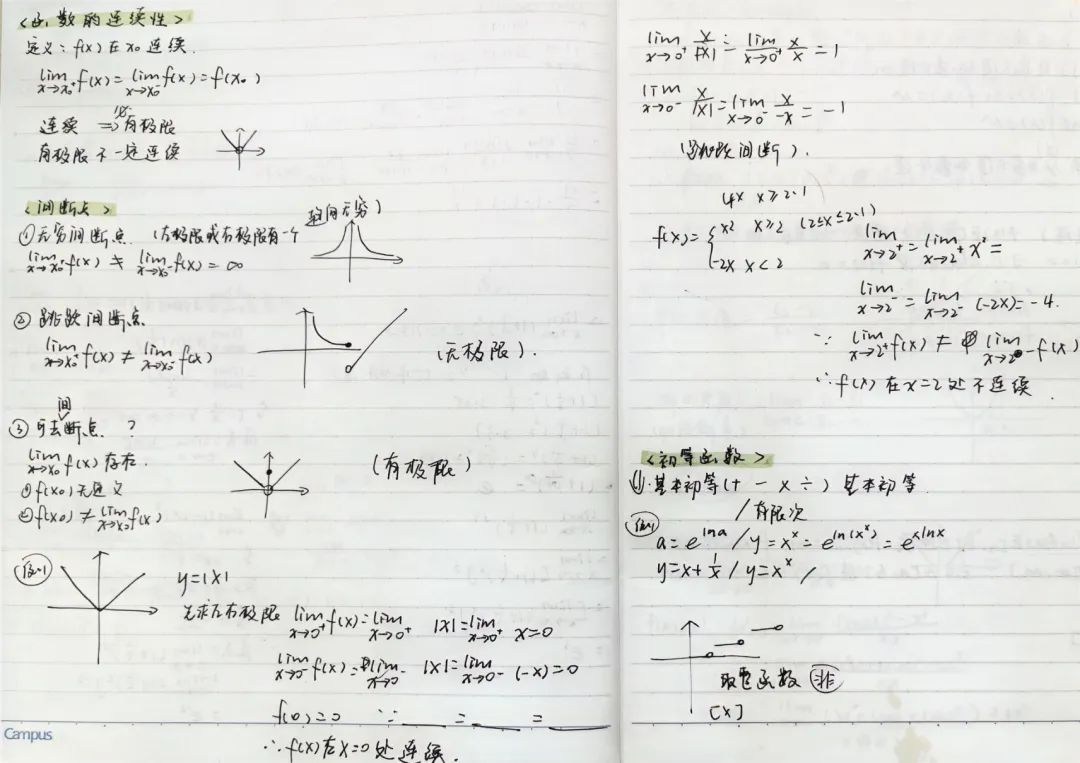 <函数的连续性>
定义: f(x) 在 x₀ 连续.
lim x→x₀⁺ f(x) = lim x→x₀⁻ f(x) = f(x₀)
连续 ⇒ 有极限
有极限 不一定连续
<间断点>
①无穷间断点. (左极限或右极限有一个趋向无穷)
lim x→x₀⁺ f(x) ≠ lim x→x₀⁻ f(x) = ∞
② 跳跃间断点
lim x→x₀⁺ f(x) ≠ lim x→x₀⁻ f(x)
(无极限).
③ 可去间断点 ?
lim x→x₀ f(x) 存在.
① f(x₀) 无定义
② f(x₀) ≠ lim x→x₀ f(x)
(有极限)
例1
y=|x|
先求左右极限 lim x→0⁺ f(x) = lim x→0⁺ |x| = lim x→0⁺ x = 0
lim x→0⁻ f(x) = lim x→0⁻ |x| = lim x→0⁻ (-x) = 0
f(0) = 0 ∵ ___ = ___ = ___
∴ f(x) 在 x=0 处 连续.
Campus
lim x→0⁺ x/|x| = lim x→0⁺ x/x = 1
lim x→0⁻ x/|x| = lim x→0⁻ x/-x = -1
(跳跃间断).
f(x) = {
4x x≥2.1
x2 x≥2 (2≤x≤2.1)
-2x x<2
lim x→2⁺ = lim x→2⁺ x² =
lim x→2⁻ = lim x→2⁻ (-2x) = -4.
∵ lim x→2⁺ f(x) ≠ lim x→2⁻ f(x)
∴ f(x) 在 x=2 处 不连续.
<初等函数>
(1).基本初等(+ - × ÷) 基本初等.
/有限次
例1
a = e^lna / y = x^x = e^ln(x^x) = e^xlnx
y = x + 1/x / y = x^x /
取整函数 非
[x]